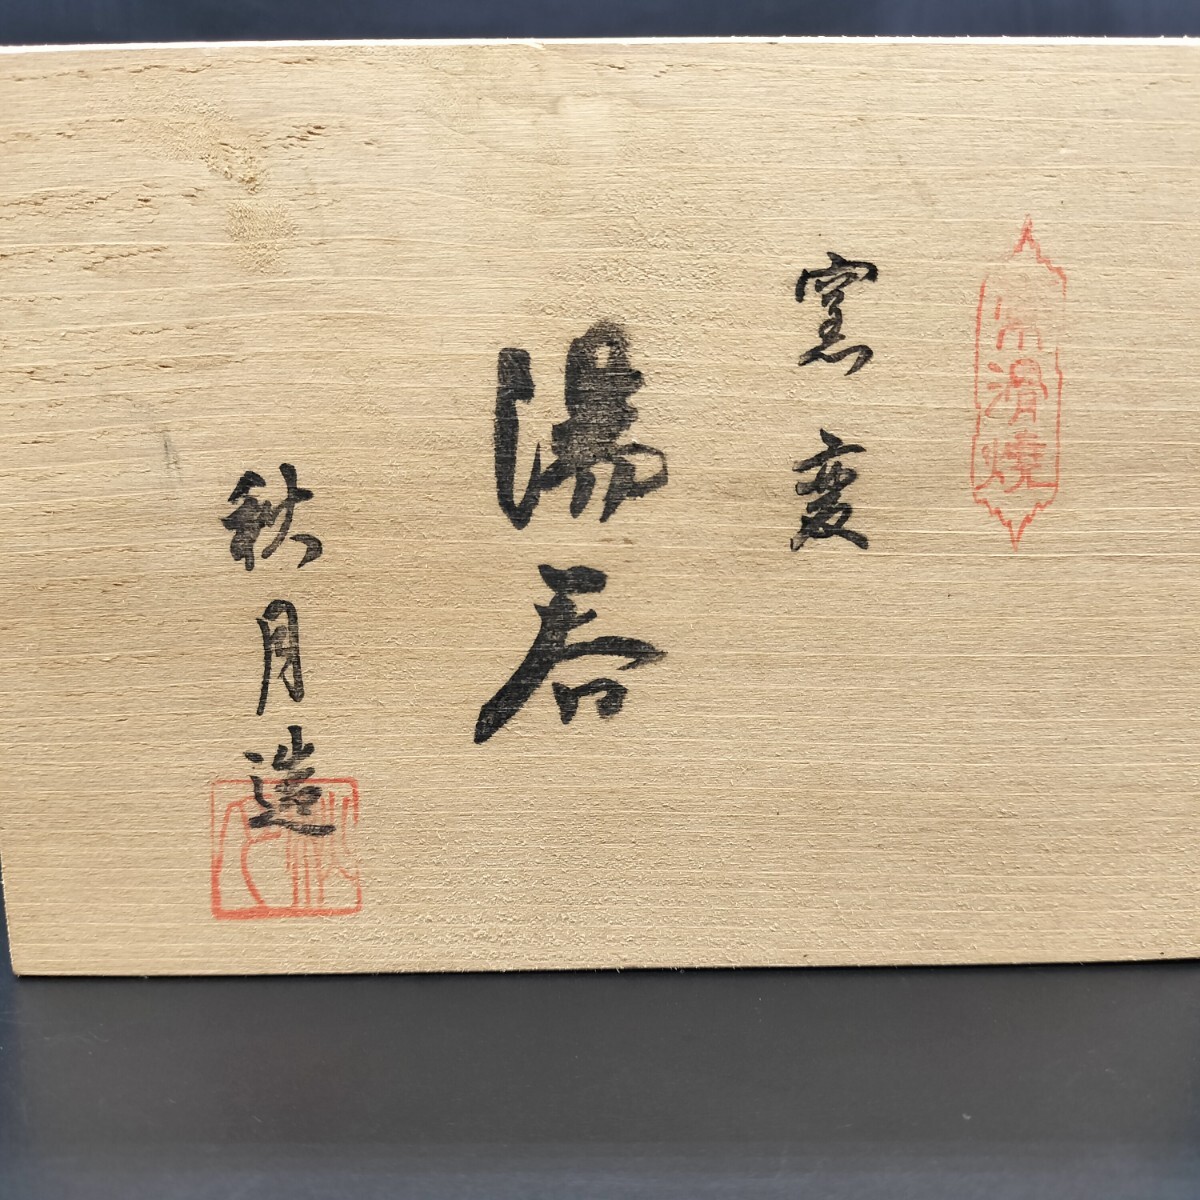 常滑焼
窯変
湯呑
秋月造